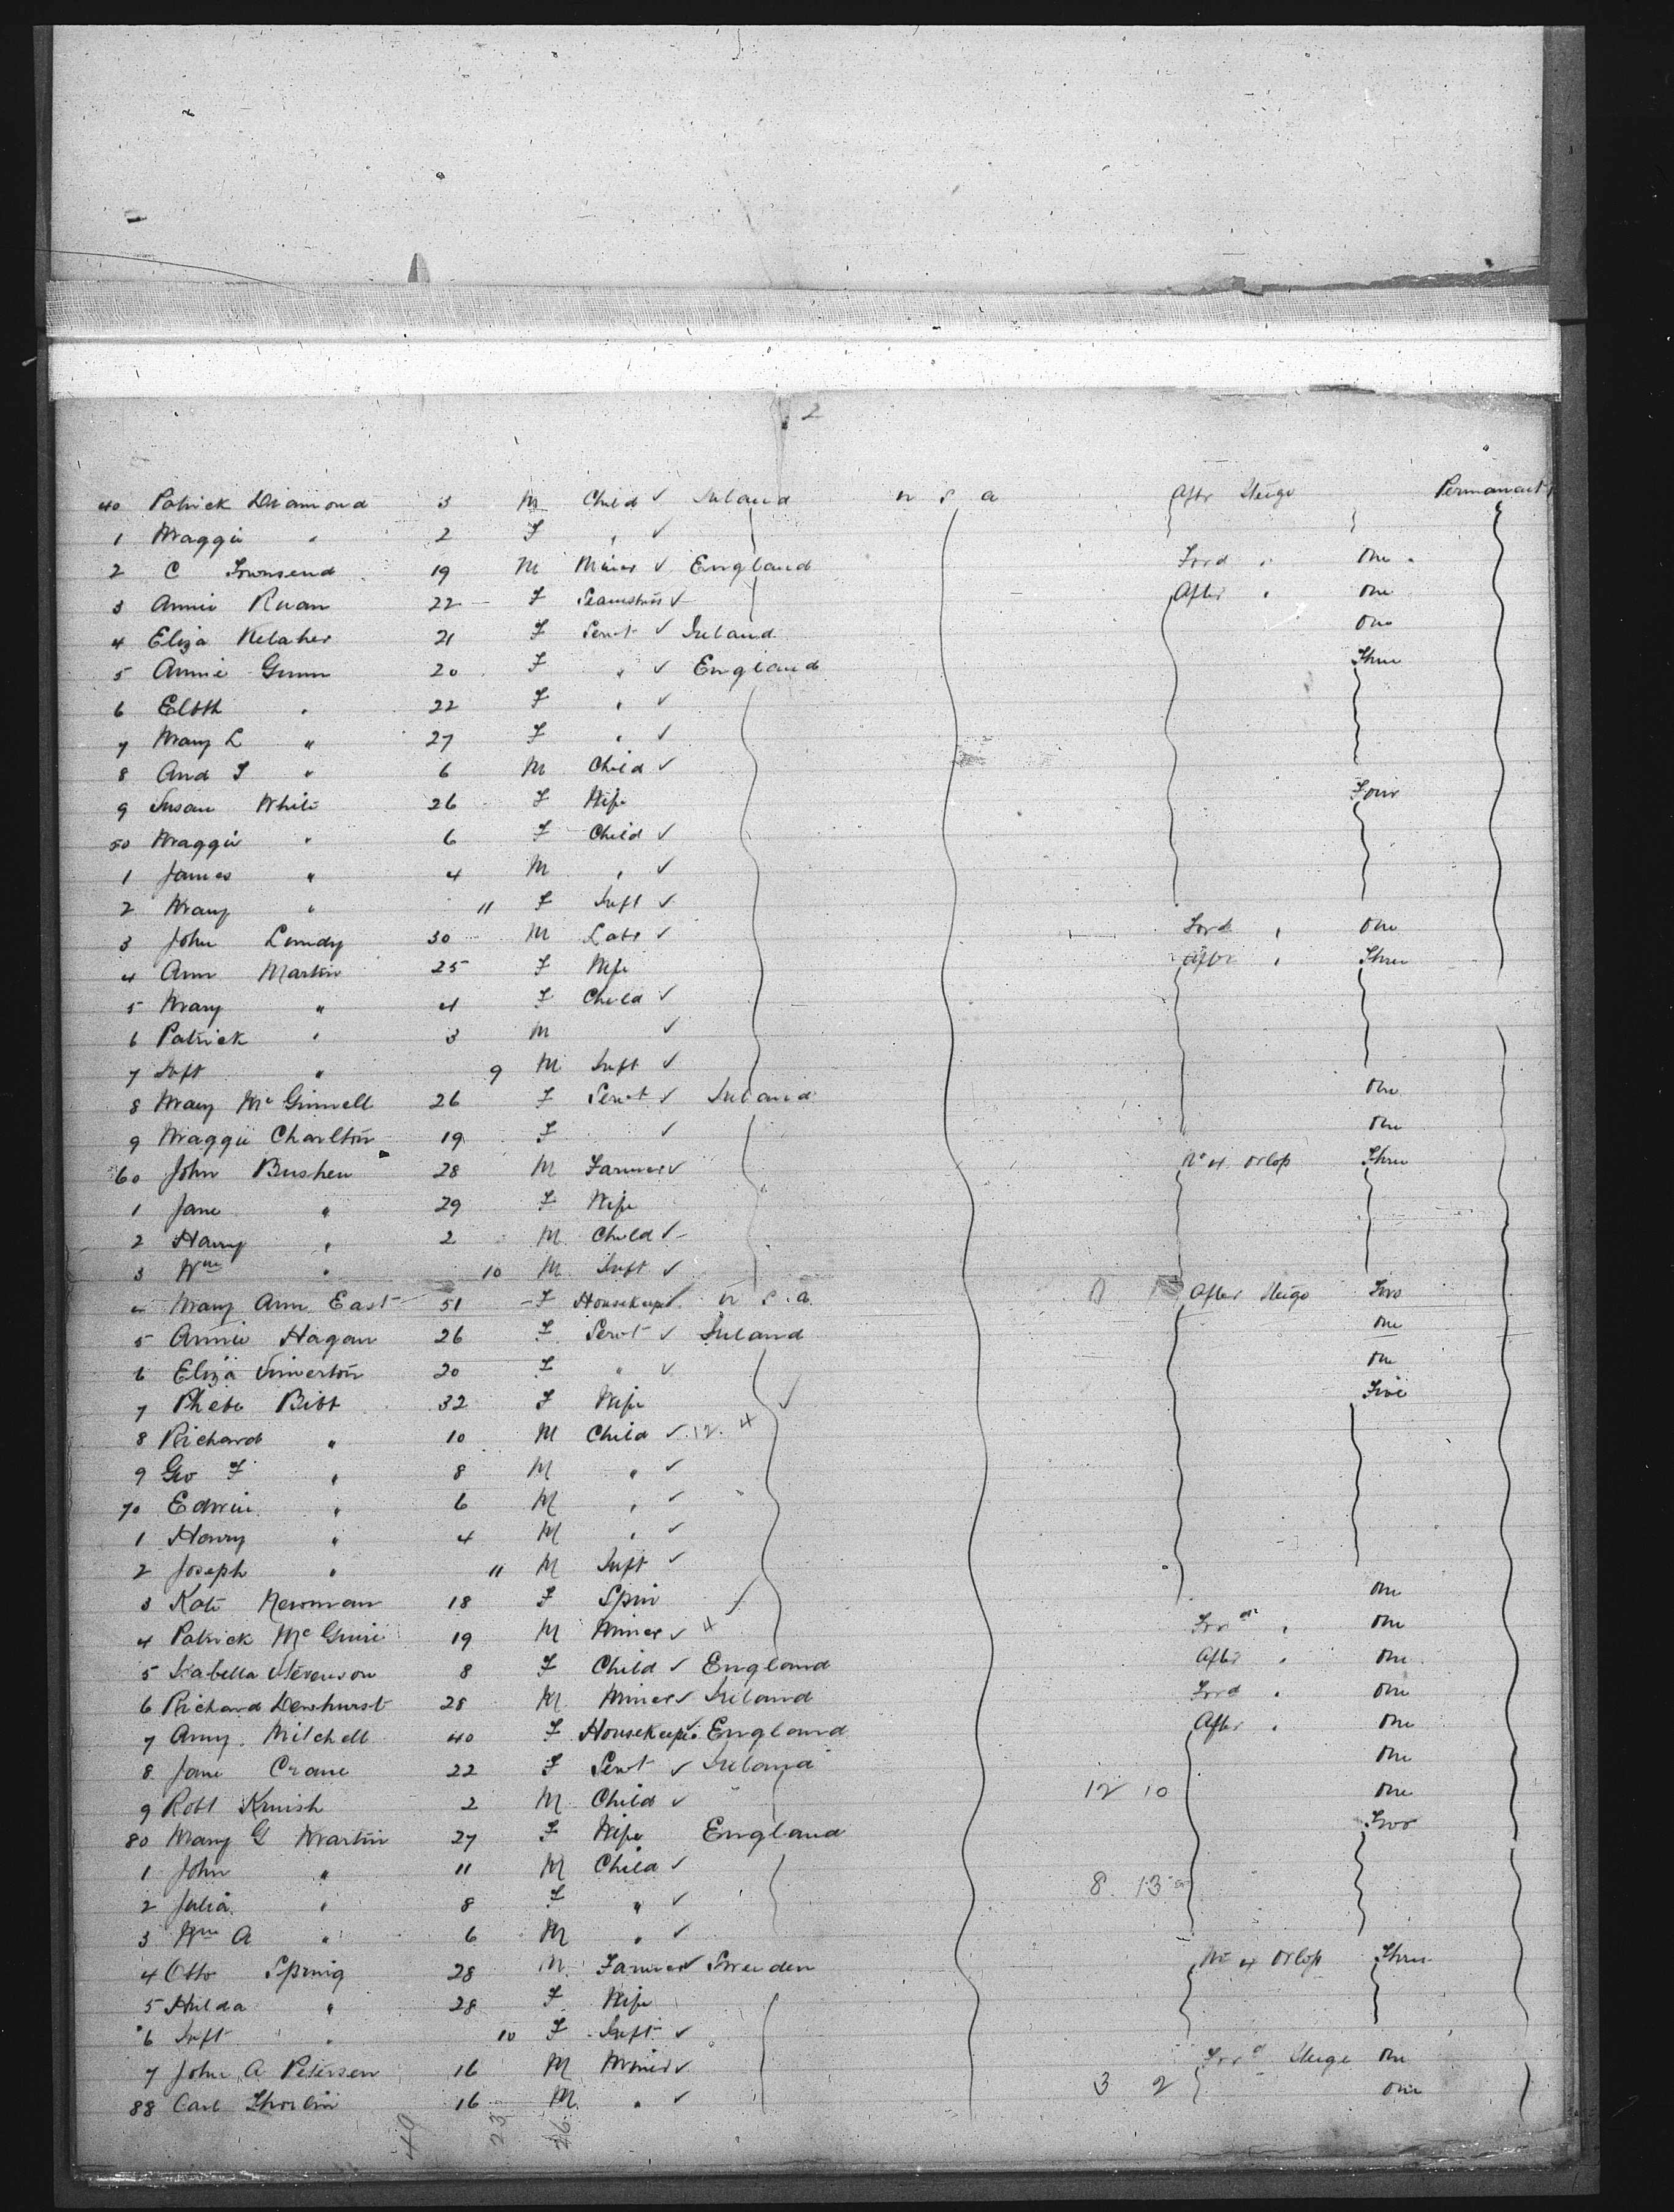 2
40 Patrick Diamond 3 M Child ✓ Ireland U S A Aftr Stege Permanent
1 Maggie " 2 F " ✓
2 C Townsend 19 M Miner ✓ England Ford " One
3 Annie Ruan 22 F Seamstress ✓ After " One
4 Eliza Kelaher 21 F Servt ✓ Ireland One
5 Annie Gunn 20 F " ✓ England Three
6 Elbth " 22 F " ✓
7 Mary L " 27 F " ✓
8 And " 6 M Child ✓
9 Susan White 26 F Wife Four
50 Maggie " 6 F Child ✓
1 James " 4 M " ✓
2 Mary " 11 F Inft ✓
3 John Lundy 30 M Labr ✓ Ford " One
4 Ann Martin 25 F Wife Aftr " Three
5 Mary " 4 F Child ✓
6 Patrick " 3 M ✓
7 Inft " 9 M Inft ✓
8 Mary McGinnell 26 F Servt ✓ Ireland One
9 Maggie Charlton 19 F ✓ One
60 John Bushen 28 M Farmer ✓ No 4 Orlop Three
1 Jane " 29 F Wife
2 Harry " 2 M Child ✓
3 Wm " 10 M Inft ✓
4 Mary Ann East 51 F Housekeepr U S A After Stege Two
5 Annie Hagan 26 F Servt ✓ Ireland One
6 Eliza Simerton 20 F " ✓ One
7 Phebe Bibt 32 F Wife ✓ Five
8 Richard " 10 M Child ✓ 12 4
9 Geo F " 8 M " ✓
70 Edwin " 6 M " ✓
1 Henry " 4 M " ✓
2 Joseph " 11 M Inft ✓
3 Kate Newman 18 F Spin ✓ One
4 Patrick McGuire 19 M Miner ✓ 4 Forrd " One
5 Isabella Stevenson 8 F Child ✓ England After " One
6 Richard Dewhurst 28 M Miner ✓ Ireland Forrd " One
7 Amy Mitchell 40 F Housekeepr England After " One
8 Jane Crane 22 F Servt ✓ Ireland One
9 Robt 2 M Child ✓ 12 10 One
80 Mary G Martin 27 F Wife England Two
1 John " 11 M Child ✓
2 Julia " 8 F " ✓ 8 13
3 Wm A " 6 M " ✓
4 Otto Spring 28 M Farmer ✓ Sweeden No 4 Orlop Three
5 Hilda " 28 F Wife
6 Inft " 10 F Inft ✓
7 John A Petersen 16 M Miner ✓ Forrd Stege One
88 Carl Thorlin 16 M " ✓ 3 2 One
49 23 26